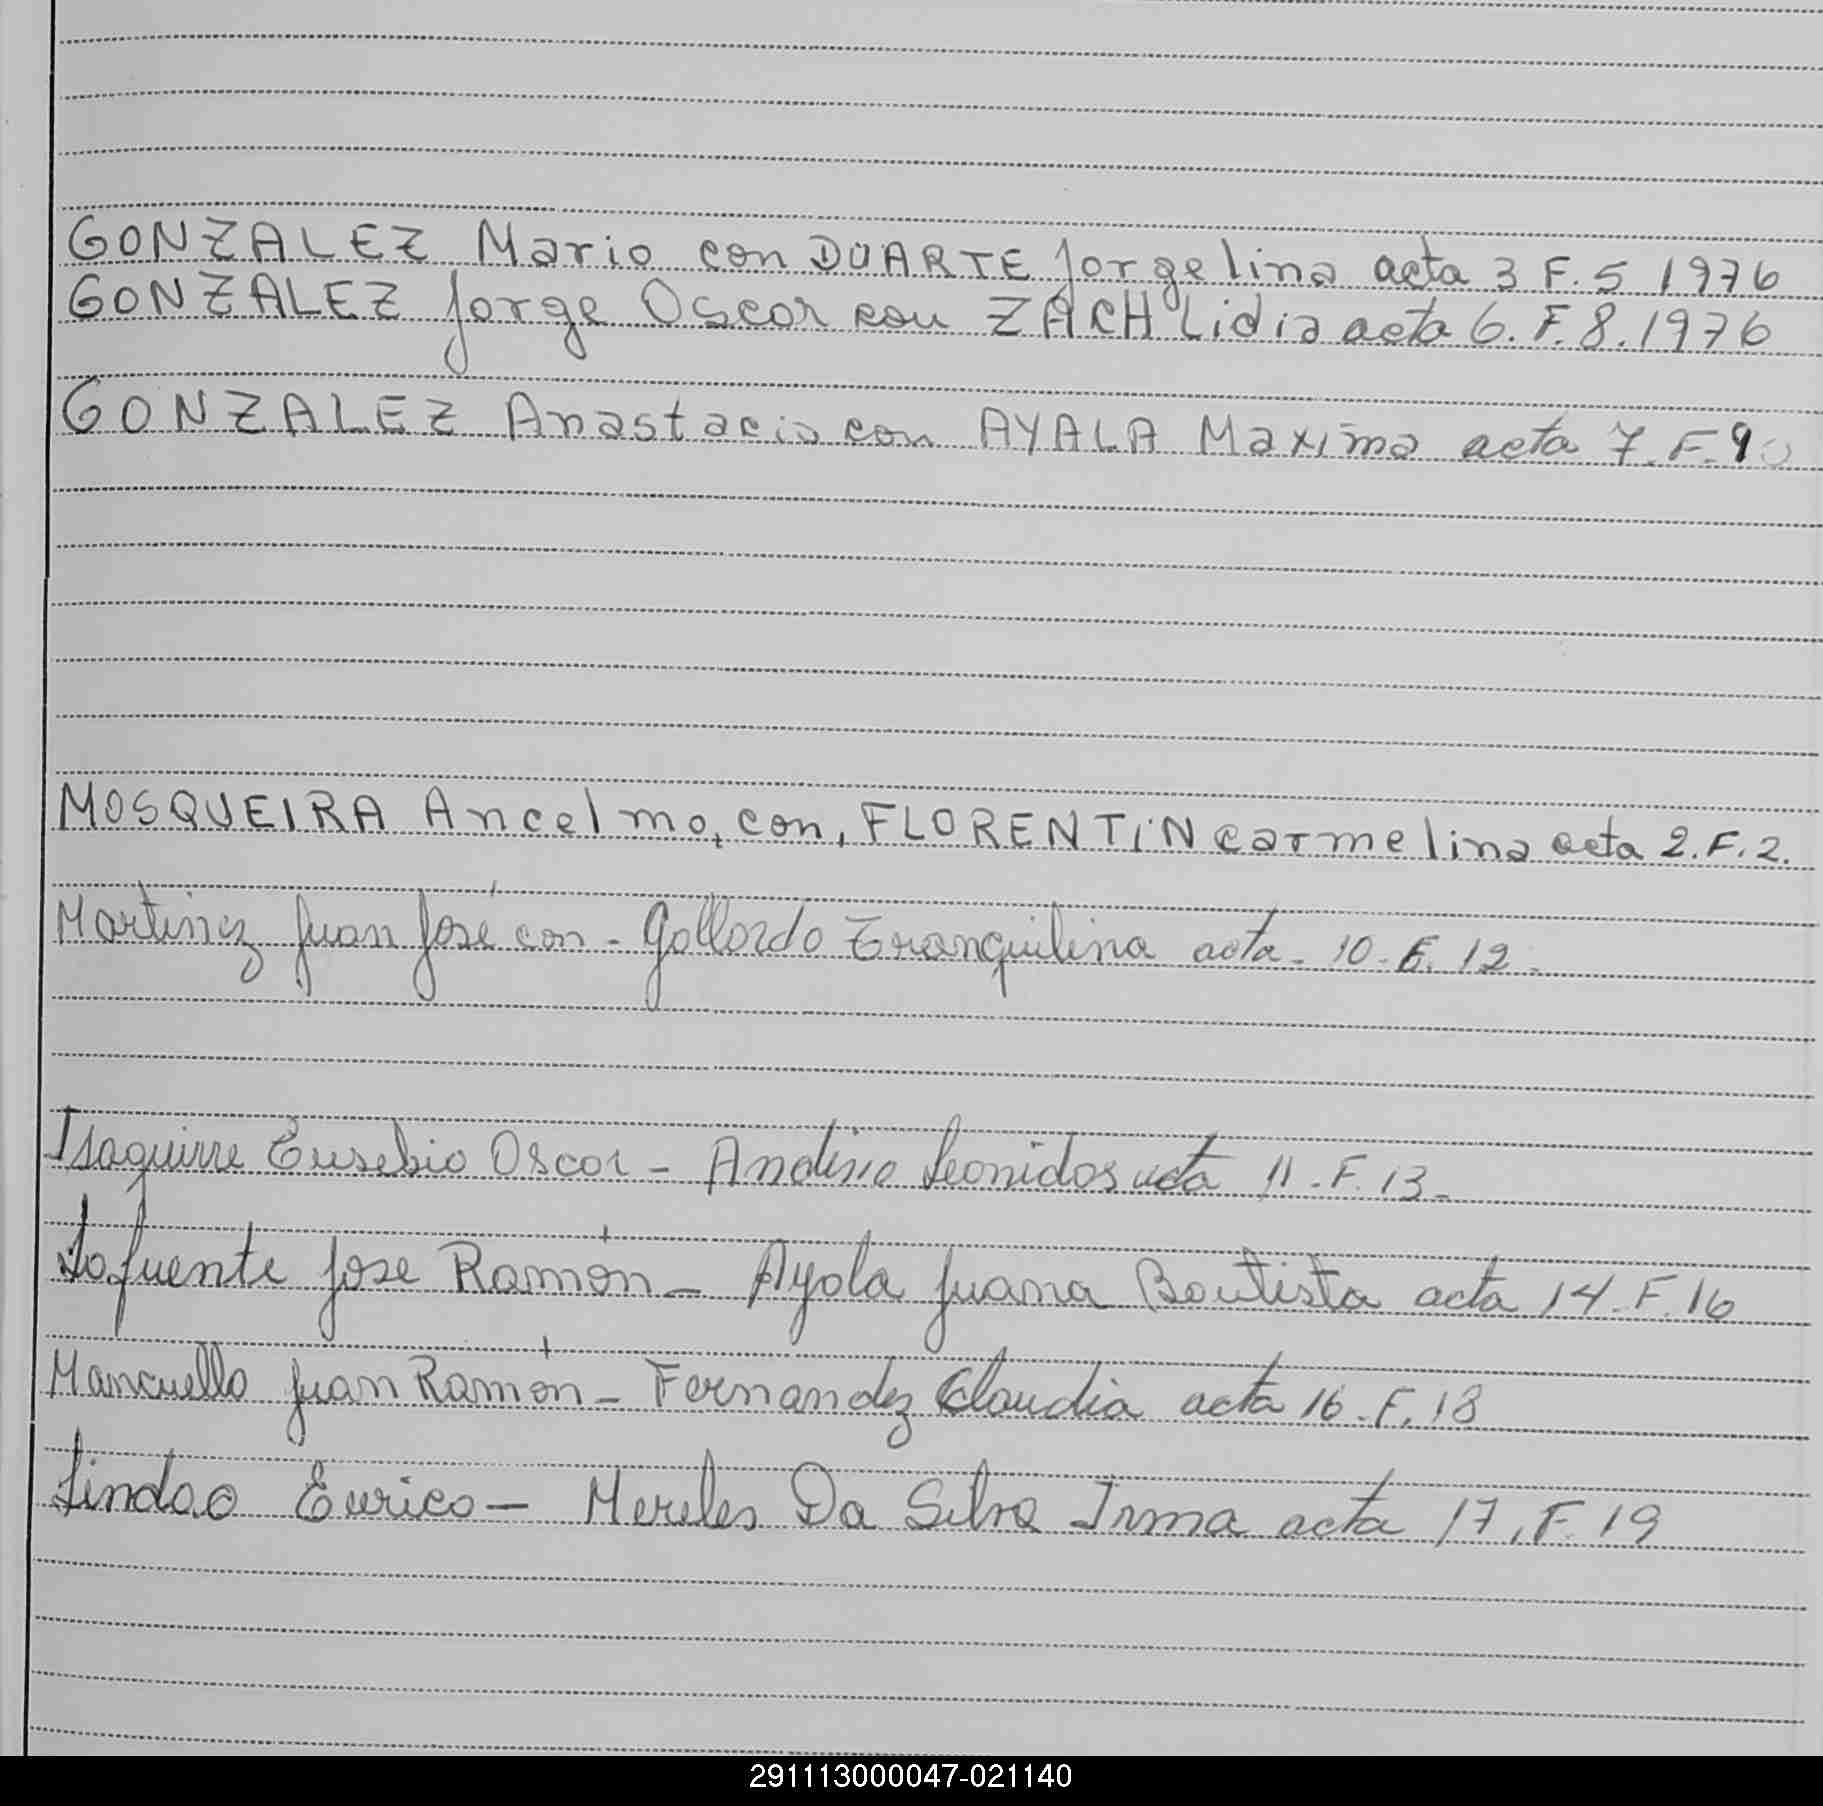 GONZALEZ Mario con DUARTE Jorgelina acta 3 F. 5 1976
GONZALEZ Jorge Oscar con ZACH Lidia acta 6. F. 8. 1976
GONZALEZ Anastacio con AYALA Maxima acta 7. F. 9
MOSQUEIRA Ancelmo, con, FLORENTIN Carmelina acta 2. F. 2.
Martinez Juan José con - Gallardo Tranquilina acta - 10 - F. 12 -
Isaguirre Eusebio Oscar - Andino Leonidas acta 11 - F. 13 -
Lafuente Jose Ramón - Ayala Juana Bautista acta 14 - F. 16
Mancuello Juan Ramón - Fernandez Claudia acta 16 - F. 18
Lindao Eurico - Mereles Da Silva Irma acta 17, F. 19
291113000047-021140